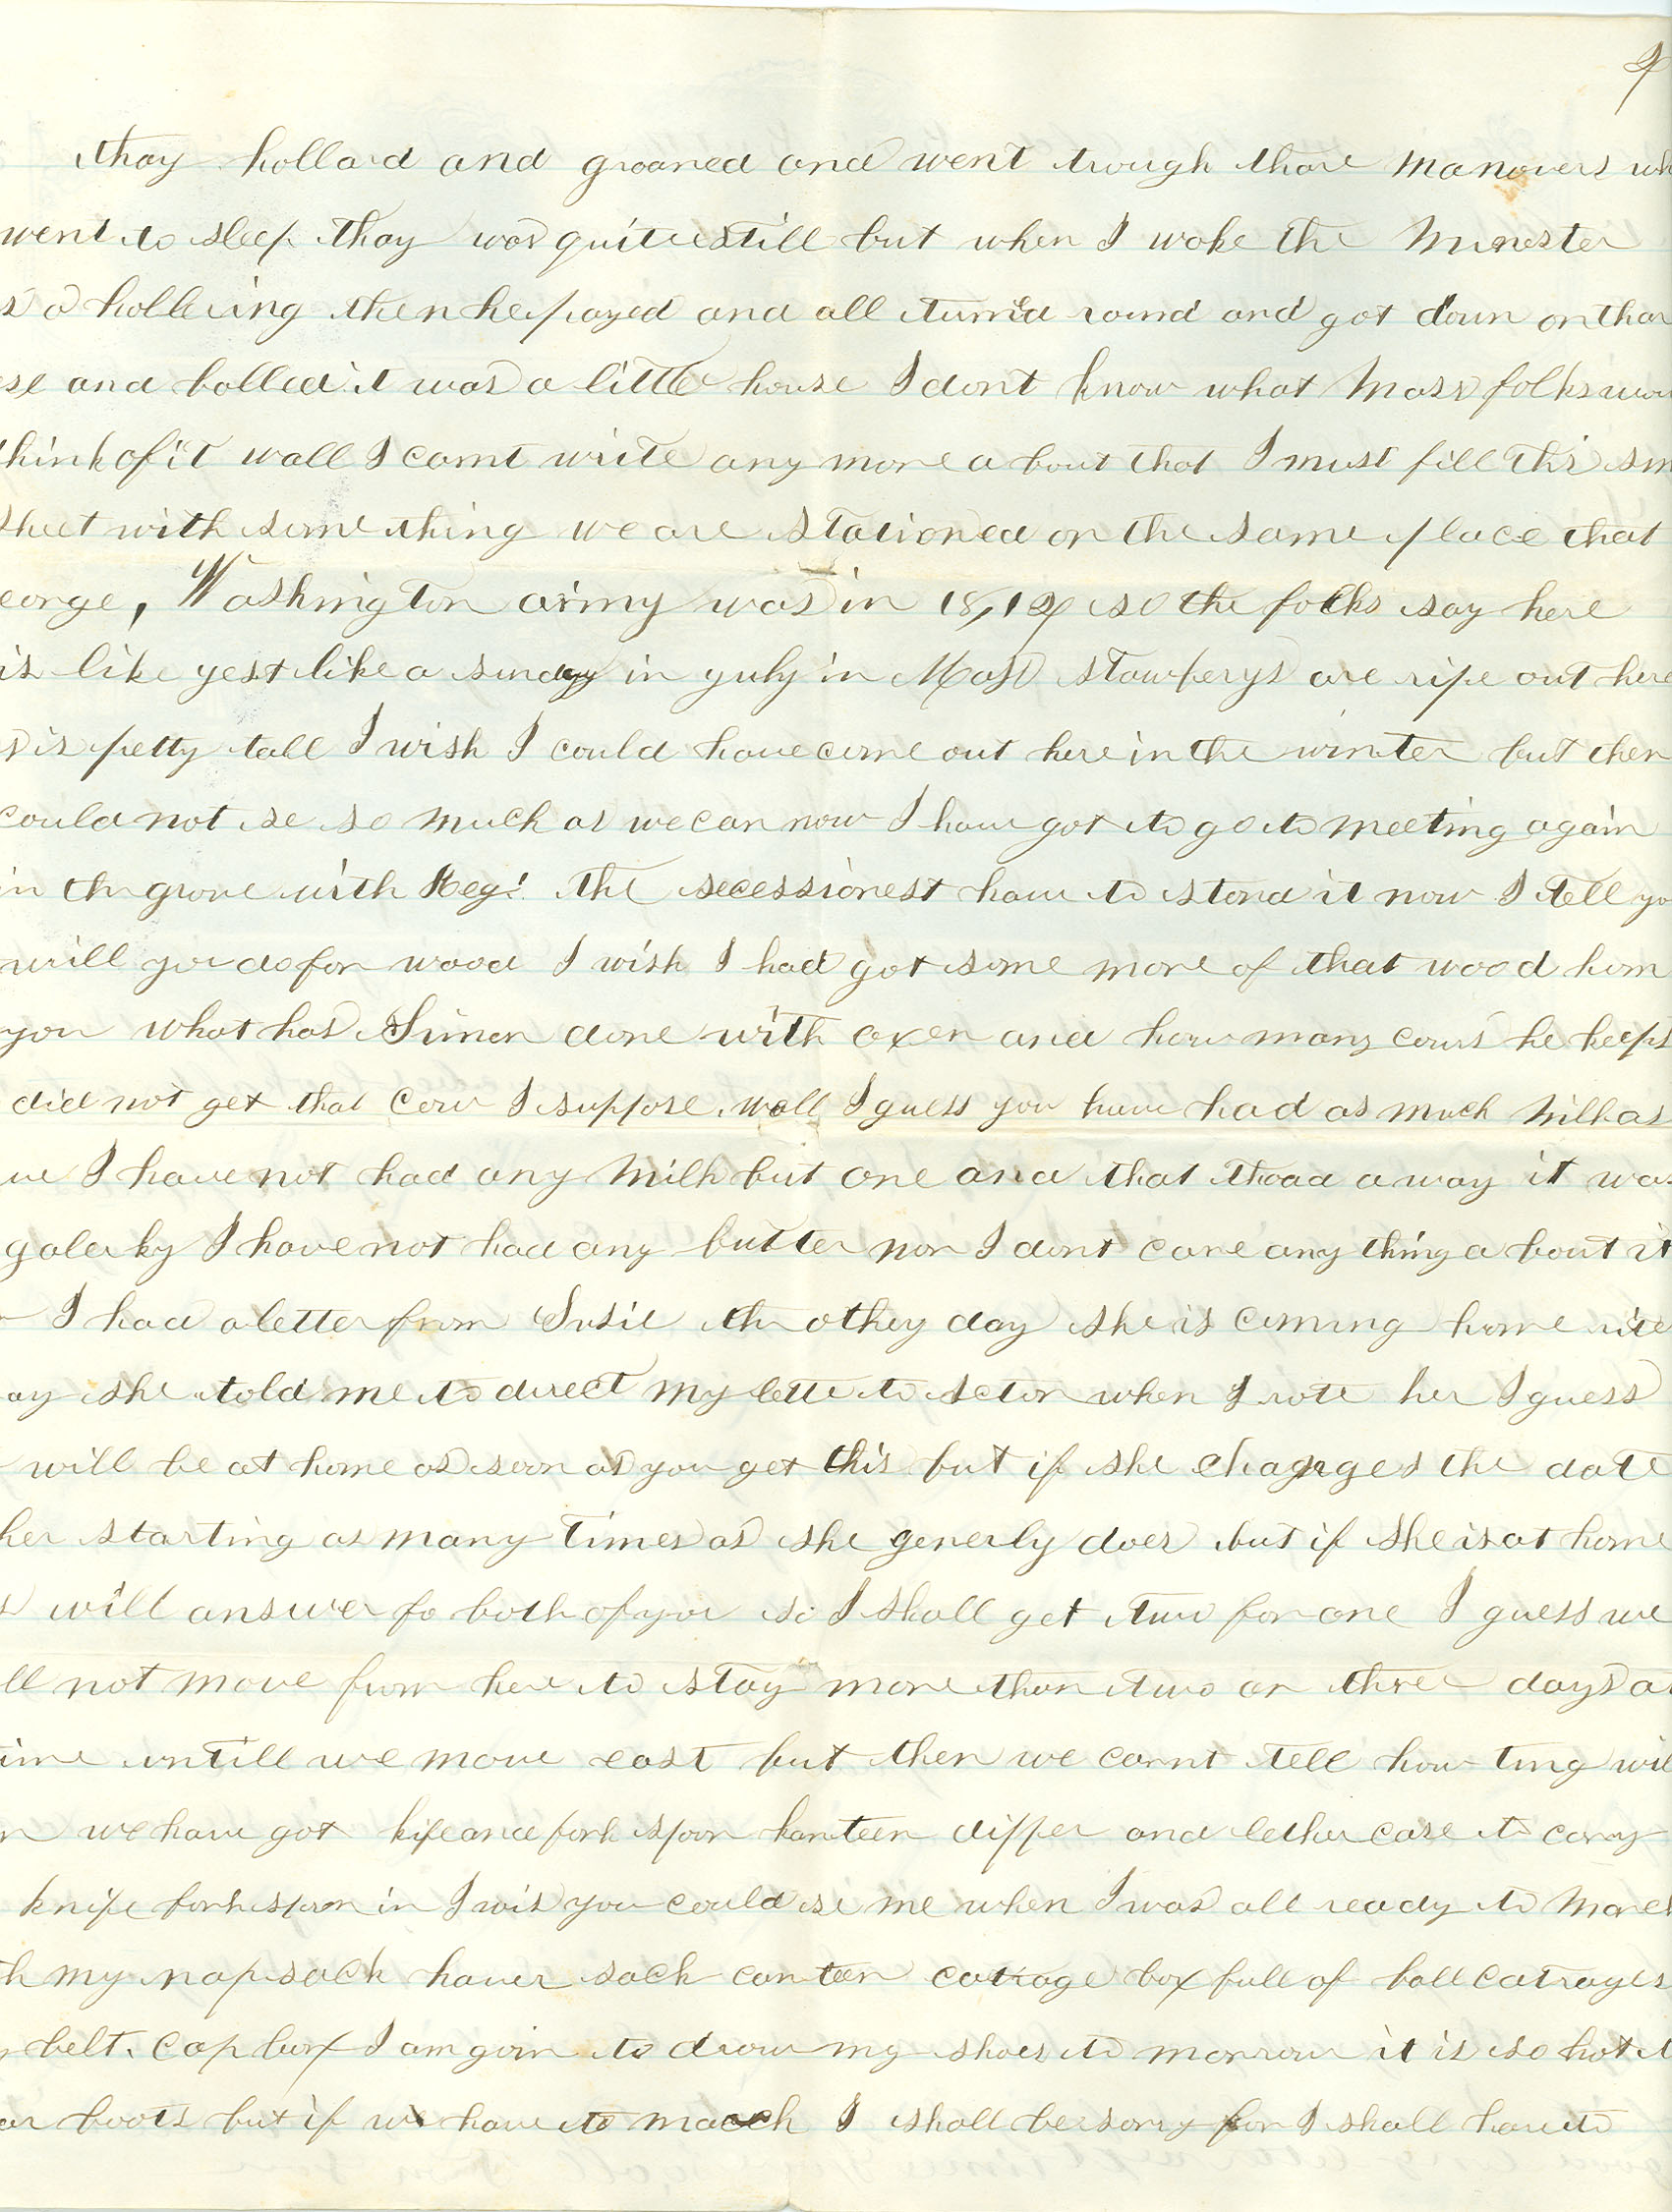 thay hollard and groaned and went trough thare manovers wh
went to sleep thay was quite still but when I woke the Minester
s a hollering then he prayed and all turn'd round and got down on thar
se and balled it was a little house I dont know what Mass folks wou
think of it wall I carnt write any more a bout that I must fill this sm
sheet with some thing we are stationed on the same place that
eorge, Washington army was in 18,12 so the folks say here
is like yest like a sunday in july in Mass stawberys are ripe out here
s is petty tall I wish I could have come out here in the winter but then
could not se so much as we can now I have got to go to meeting again
in the grove with Reg! the secessionest have to stand it now I tell yo
will you do for wood I wish I had got some more of that wood hom
you what has Simon done with oxen and how many cows he keeps
did not get that cow I suppose. wall I guess you have had as much milk as
ve I have not had any milk but one and that thoad a way it was
galerky I have not had any butter nor I dont care any thing a bout it
I had a letter from Susie the othey day she is coming home
ay she told me to direct my lette to when I rote her I guess
will be at home as soon as you get this but if she chagnges the date
her starting as many times as she generly does but if she is at home
s will answer fo both of you so I shall get two for one I guess we
ll not move from here to stay more than two or three days at
ime untill we move east but then we carnt tell how ting will
n we have got kife and fork spoon kanteen dipper and lether case to carry
knife fork spoon in I wis you could se me when I was all ready to march
th my napsack haver sack canteen catrage box full of ball catrages
y belt. cap box I am goin to draw my shoes to morrow it is so hot t
ar boots but if we have to march I shall be sorry for I shall have to